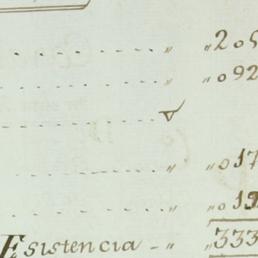 " "205
" "092
" "017
" "019
Esistencia - " "333